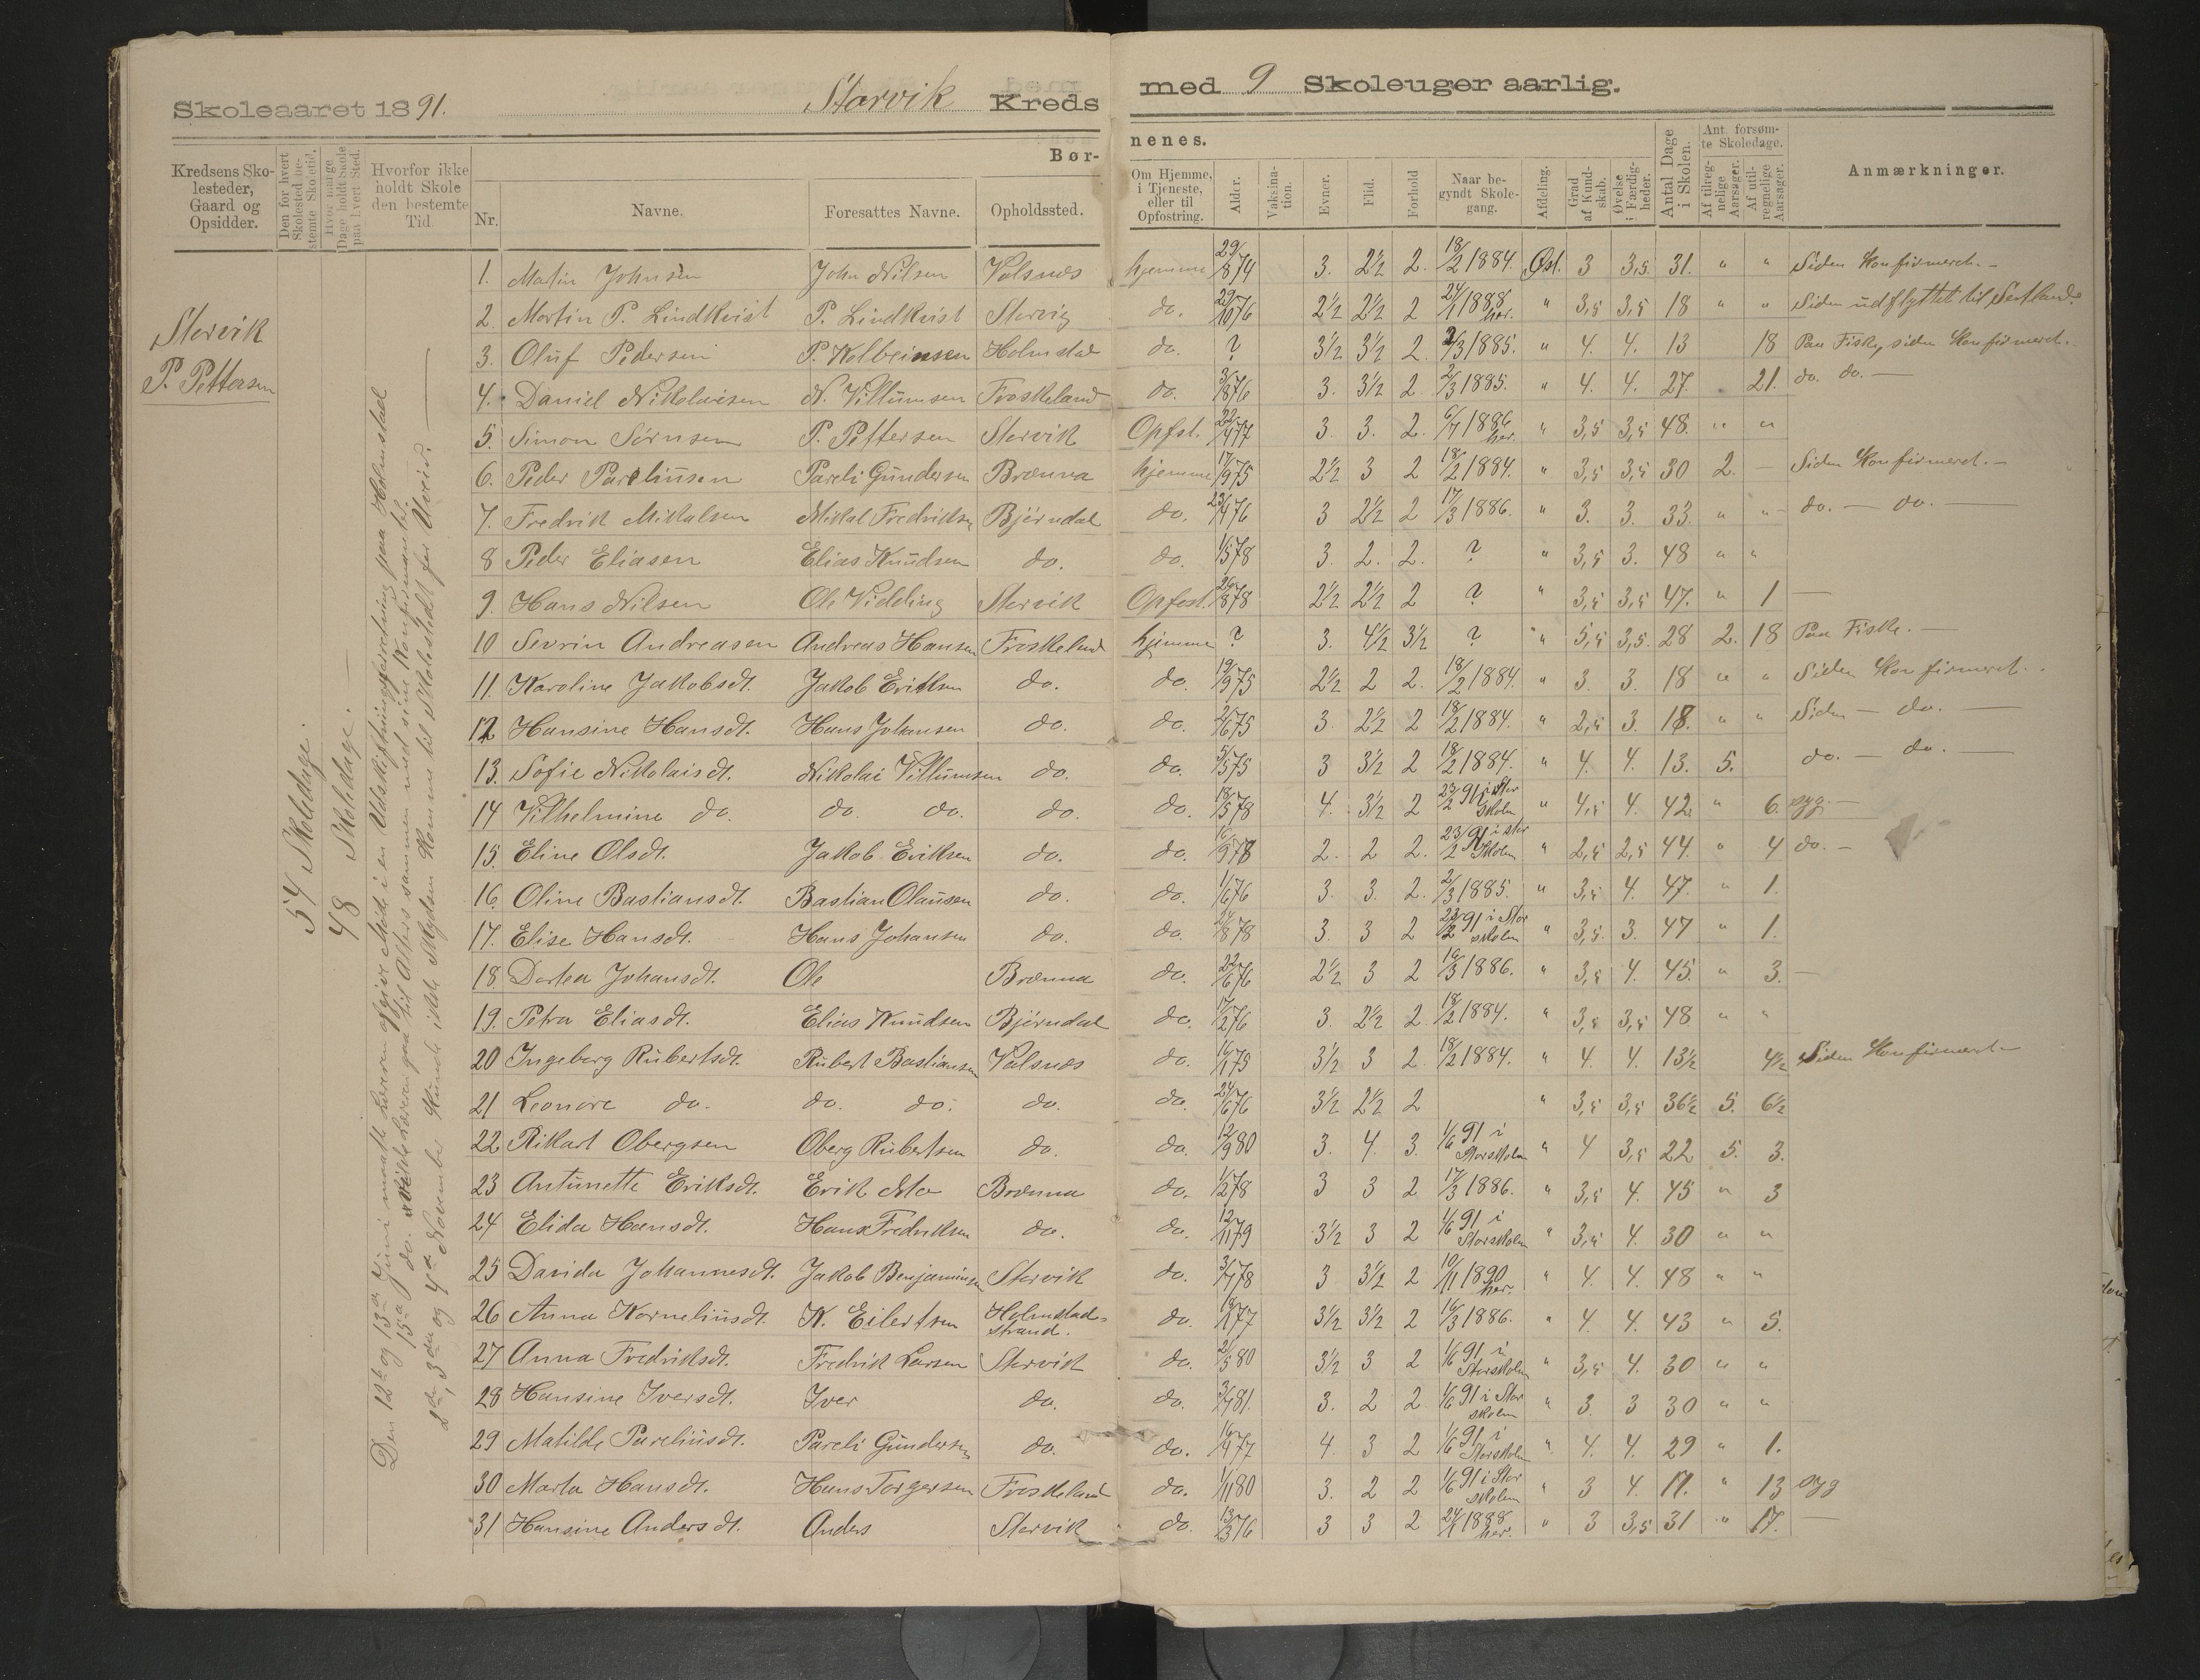 Skoleaaret 1891. Størvik Kreds med 9 Skoleuger aarlig.
Kredsens Skolesteder, Gaard og Opsidder.
Den for hvert Skolested bestemte Skoletid.
Hvor mange Dage holdt Skole paa hvert Sted.
Hvorfor ikke holdt Skole den bestemte Tid.
Børnenes.
Nr. Navne. Foresattes Navne. Opholdssted. Om Hjemme, i Tjeneste, eller til Opfostring. Alder. Vaksination. Evner. Flid. Forhold Naar begyndt Skolegang. Afdeling. Grad af Kundskab. Øvelse i Færdigheder. Antal Dage i Skolen. Ant. forsømte Skoledage. Af tilregnelige Aarsager. Af utilregnelige Aarsager. Anmærkninger.
Størvik
P. Pettersen
54 Skoledage.
48 Skoledage.
Den 12te og 13de Juni maatte Læreren afgive Møde i en Udskiftningsforretning paa Holmstad
15de do. vilde Læreren gaa til Alters sammen med sine Konfirmanter.
2den, 3die og 4de November kunde ikke Skydsen komme til Skolestedet for Uveir.
1. Martin Johnsen John Nilsen Valsnæs hjemme 29/8 74 3. 2½ 2. 18/2 1884. Øst. 3 3,5 31. " " Siden Konfirmeret.
2. Martin P. Lindkvist P. Lindkvist Størvig do. 29/10 76 2½ 2½ 2 24/1 1888 her. " 3,5 3,5 18 " " Siden udflyttet til Sortland
3. Oluf Pedersen P. Kolbeinsen Holmstad do. ? 3½ 3½ 2. 2/3 1885. " 4. 4. 13 18 Paa Fiske, siden Konfirmeret.
4. Daniel Nikolaisen N. Villumsen Froskeland do. 3/8 76 3. 3½ 2 2/3 1885. " 4. 4. 27. 21. do. do.
5. Simon Sørnsen P. Pettersen Størvik Opfst. 22/4 77 3. 3. 2. 6/7 1886 her. " 3,5 3,5 48. " "
6. Peder Pareliusen Pareli Gundersen Brænna hjemme 17/9 75 2½ 3 2 18/2 1884. " 3,5 3,5 30 2. – Siden Konfirmeret.
7. Fredrik Mikalsen Mikal Fredriksen Bjørndal do. 23/4 76 3 2½ 2 17/3 1886. " 3. 3. 33 " " do. – do.
8 Peder Eliasen Elias Knudsen do. do. 1/5 78 3. 2. 2. ? " 3,5 3. 48 " "
9. Hans Nilsen Ole Vidding Størvik Opfost. 26/8 78 2½ 2½ 2 ? " 3,5 3,5 47. " 1
10 Sevrin Andreasen Andreas Hansen Froskeland hjemme ? 3. 4½ 3½ ? " 5,5 3,5. 28 2. 18 Paa Fiske.
11. Karoline Jakobsdt. Jakob Eriksen do. do. 19/9 75 2½ 2 2. 18/2 1884. " 3. 3. 18 " " Siden Konfirmeret.
12 Hansine Hansdt. Hans Johansen do. do. 2/6 75 3. 2½ 2 18/2 1884. " 2,5 3 18. " " Siden – do.
13. Sofie Nikolaisdt. Nikolai Villumsen do. do. 5/5 75 3 3½ 2 18/2 1884. " 4. 4. 13. 5. do. – do.
14 Vilhelmine do. do. do. do. do. 18/5 78 4. 3½ 2 23/2 91 i Storskolen " 4,5 4. 42. " 6. syg.
15. Eline Olsdt. Jakob Eriksen do. do. 16/9 78 2. 2 2. 23/2 91 i storskolen " 2,5 2,5 44. " 4 do.
16. Oline Bastiansdt. Bastian Olausen do. do. 1/6 76 3. 3. 2. 2/3 1885. " 3,5 4. 47. " 1.
17. Elise Hansdt. Hans Johansen do. do. 24/8 78 3. 3 2 23/2 91 i Storskolen " 3,5. 3. 47 " 1.
18. Dortea Johansdt. Ole Brænna do. 22/6 76 2½ 3 2 16/3 1886. " 3,5 4. 45. " 3.
19. Petra Eliasdt. Elias Knudsen Bjørndal do. 17/2 76 3. 2½ 2. 18/2 1884. " 3,5 3,5 48 " "
20 Ingeborg Rubertsdt. Rubert Bastiansen Valsnæs do. 16/1 75 3½ 3 2 18/2 1884. " 4. 4. 13½ 4½ Siden Konfirmeret
21 Leonore do. do. do. do. do. 24/6 76 3½ 2½ 2 " 3,5 3,5 36½ 5. 6½
22. Rikart Obergsen Oberg Rubertsen do. do. 12/9 80 3. 4. 3. 1/6 91 i Storskolen " 4 3,5 22 5. 3.
23 Antunette Eriksdt. Erik Mo Brænna do. 1/2 78 3 3 2 17/3 1886. " 3,5 4. 45 " 3
24 Elida Hansdt. Hans Fredriksen do. do. 12/1 79 3½ 3 2 1/6 91 i Storskolen " 3,5 4. 30 " "
25 Davida Johannesdt. Jakob Benjaminsen Størvik do. 3/7 78 3 3½ 2 10/11 1890 her. " 4. 4. 48 " "
26 Anna Korneliusdt. K. Eilertsen Holmstadstrand. do. 18/1 77 3½ 3½ 2 16/3 1886. " 4. 4. 43 " 5.
27 Anna Fredriksdt. Fredrik Larsen Størvik do. 2/5 80 3½ 3 2 1/6 91 i Storskolen " 3,5 4. 30 " "
28 Hansine Iversdt. Iver do. do. 3/4 81. 3. 2 2 1/6 91 i Storskolen " 3. 3 30 " "
29 Matilde Pareliusdt. Pareli Gundersen do. do. 16/4 77 4. 3 2 1/6 91 i Storskolen " 4. 4. 29 " 1.
30 Marta Hansdt. Hans Torgersen Froskeland do. 1/11 80 3. 2 2 1/6 91 i Storskolen " 3 4. 17. " 13 syg
31 Hansine Andersdt. Anders Størvik do. 13/3 76 3 3 2 24/1 1888 her. " 3 3,5 31 " 17.